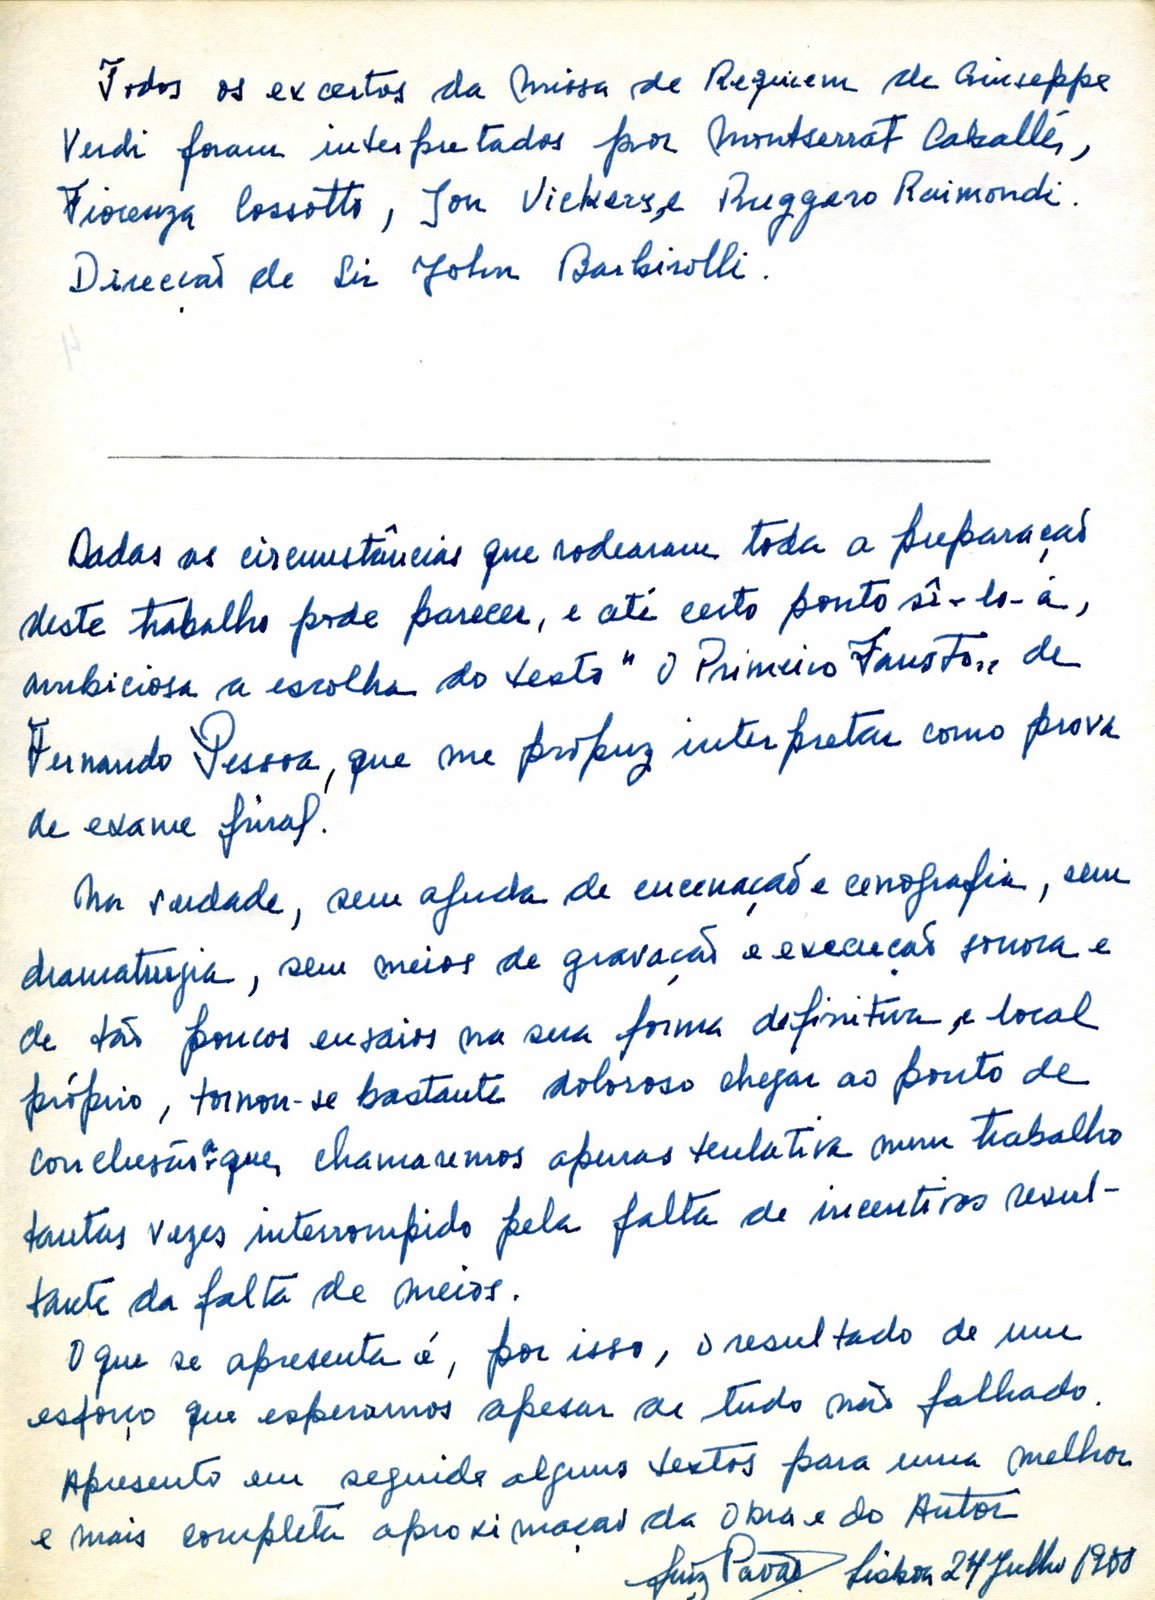 Todos os excertos da Missa de Requiem de Giuseppe
Verdi foram interpretados por Montserrat Caballés,
Fiorenza Cossotto, Jon Vickers, e Ruggero Raimondi.
Direcção de Sir John Barbirolli.
Dadas as circunstâncias que rodearam toda a preparação
deste trabalho pode parecer, e até certo ponto sê-lo-á,
ambiciosa a escolha do texto "O Primeiro Fausto" de
Fernando Pessoa, que me propuz interpretar como prova
de exame final.
Na verdade, sem ajuda de encenação e cenografia, sem
dramaturgia, sem meios de gravação e execução sonora e
de tão poucos ensaios na sua forma definitiva, e local
próprio, tornou-se bastante doloroso chegar ao ponto de
conclusão que chamaremos apenas tentativa num trabalho
tantas vezes interrompido pela falta de incentivos resul-
tante da falta de meios.
O que se apresenta é, por isso, o resultado de um
esforço que esperamos apesar de tudo não falhado.
Apresento em seguida alguns textos para uma melhor
e mais completa aproximação da Obra e do Autor
Luiz Pavão Lisboa 24 Julho